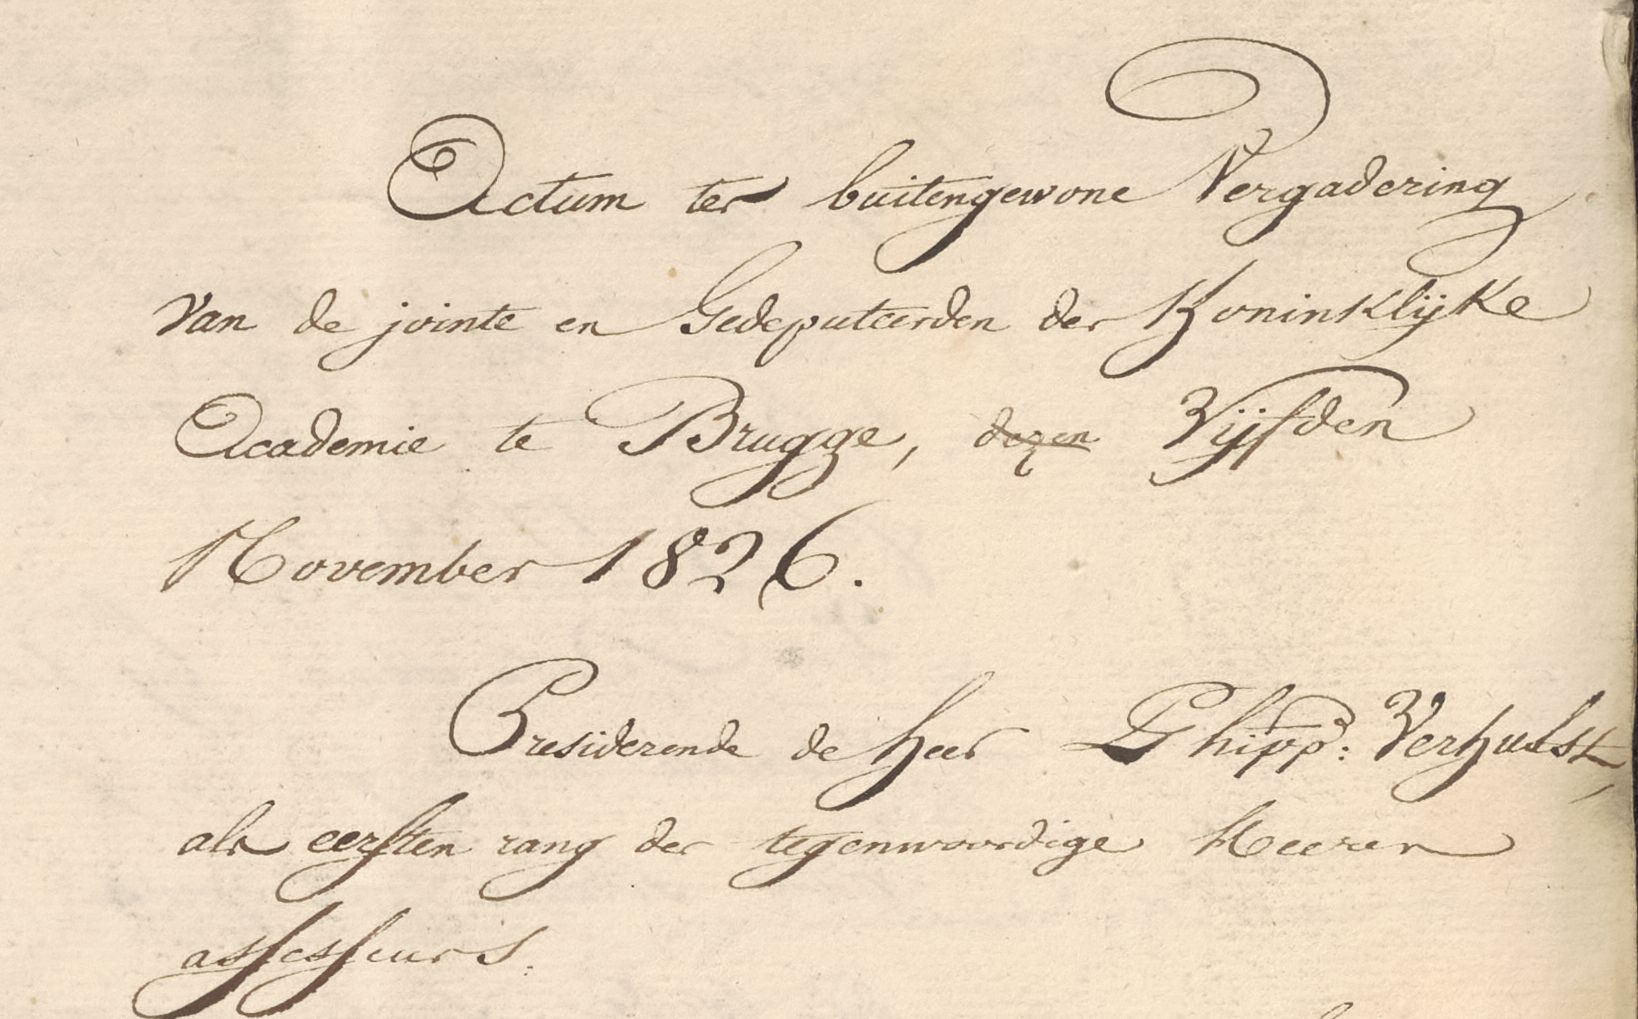 Actum ter buitengewone Vergadering
van de jointe en Gedeputeerden der Koninklijke
Academie te Brugge, dezen Vijfden
November 1826.
Presiderende de heer Phipp: Verhulst,
als eersten rang der tegenwoordige Heeren
assesseurs.